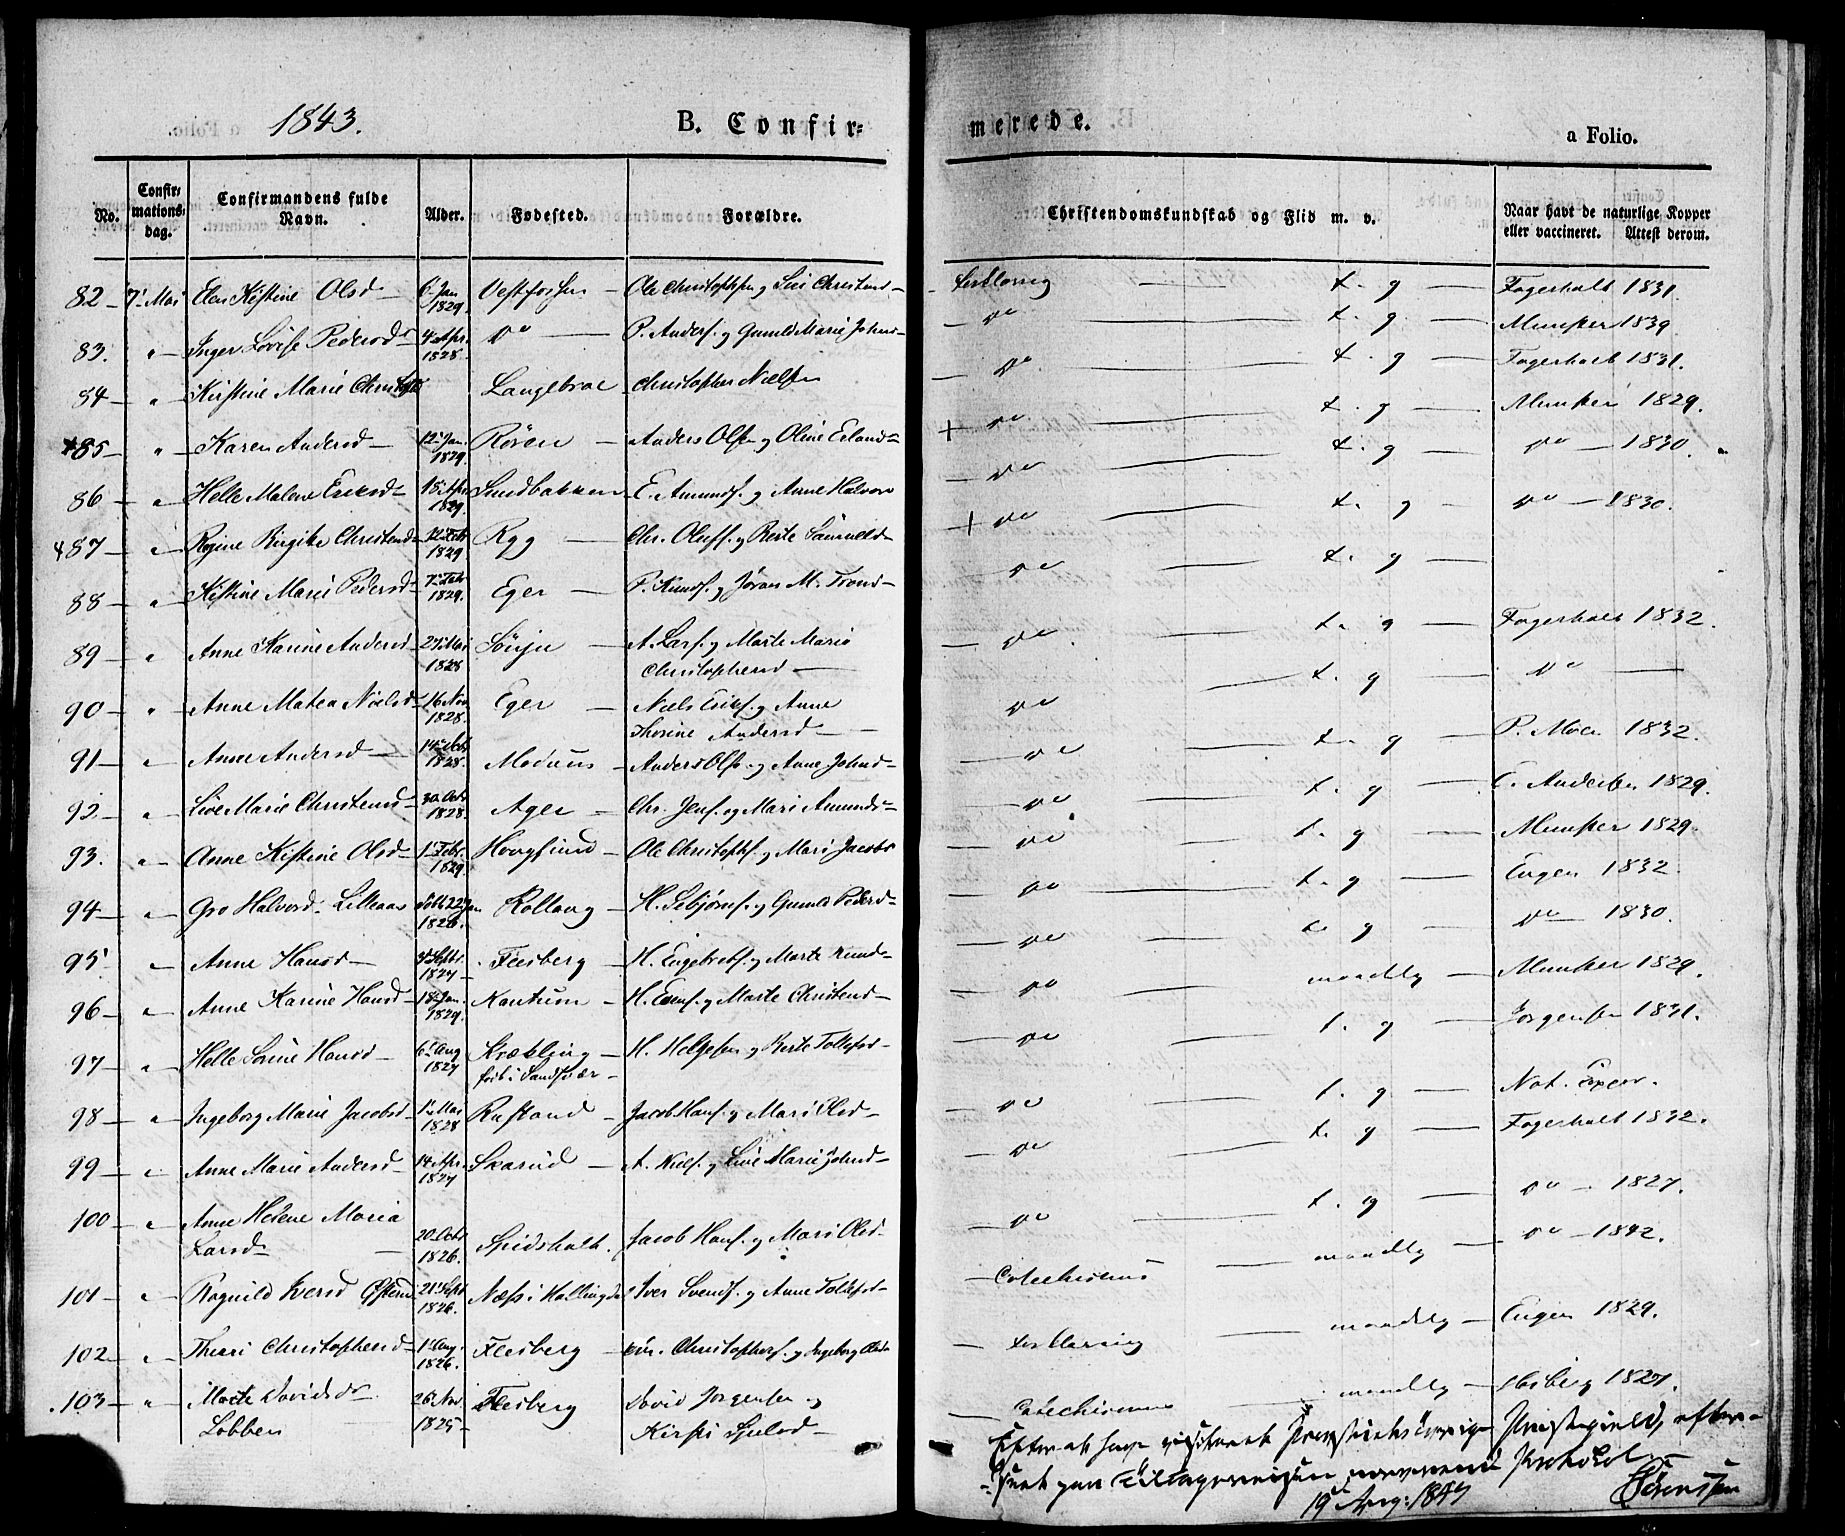 1843.
B. Confir=
merede.
a Folio.
No.
Confir=
mations=
dag.
Confirmandens fulde
Navn.
Alder.
Fødested.
Forældre.
Christendomskundskab og Flid m. v.
Naar havt de naturlige Kopper
eller vaccineret. Attest derom.
82 — 7 Mai Elen Kistine Olsd — 6 Jan 1829. Vestfossen — Ole Christophsen og Christensd —
Forklaring — t. g — Fagerholt 1831.
83. " — Inger Lovise Pedersd — 4 Apr. 1828. do — P. Anders. og Gunild Marie Johnsd —
— do — t. g. — Munster 1839
84 — " — Kirstine Marie Langebroe — Christopher Nielsen
— do. — t. g — Fagerholt 1831.
+85 — " — Karen Andersd — 12 Jan. 1829. Røren — Anders Olsen og Oline Erlands —
+ do — t. g — Munster 1829.
86 — " — Helle Malene Eriksd — 15 Apr. 1829. Sundbakken — E. Amunds. og Anne Halvors
— do — t. g — do — 1830.
+87 — " — Regine Birgithe Christensd — Feb 1829 Rygg — Chr. Oluf. og Berte Samuelsd —
+ do — t. g — do — 1830.
88 — " — Kistine Marie Pedersd — 7 Febr 1829. Eger — P. Knuds. og Jøran M. Trond —
— do — t. g
89 — " — Anne Karine Andersd — 27 Mai 1828 — A. Lars. og Marte Maria
Christophersd —
— do — t. g — Fagerholt 1832.
90 — " — Anne Matea Nielsd — 16 Nov 1828. Eger — Niels Eriks. og Anne
Thorine Andersd —
— do — t. g — do —
91 — " — Anne Andersd — 14 1828. Modum — Anders Olss. og Anne Johnsd —
— do — t. g — P. Moe 1832.
92 — " — Live Marie Christensd — 30 Octb 1828. Ager — Chr. Jens. og Mari Amunds —
— do — t. g — E. Andersen 1829.
93. " — Anne Kistine Olsd — 1 Febr. 1829. Hougsund — Ole Christophs. og Mari Jacobs
— do — t. g — Munster 1829.
94 — " — Gro Halvorsd. Lilleaas 22 Jan 1826. Rollaug — H. og Gunild Pedersd —
— do — t. g — Eugen 1832.
95 — Anne Hansd — Septbr. 1827 — Flesberg — H. Engebrets. og Marte Knuds —
— do — t. g — do — 1830.
96 — " — Anne Karine Hansd — 18 Jan. 1829. Kontrum — H. Evens. og Marte Christensd —
— do — maadlig — Munster 1829.
97 — " — Helle Sorine Hansd — 6 Aug 1827 Krækling — H. Helgesen og Berte Tollefsd —
født i Sandsvær —
— do — t. g — Jørgensen 1831.
98 — " — Ingeborg Marie Jacobsd — 1 Mai 1828 Rustand — Jacob Hans. og Mari Olsd —
— do — t. g — Nat. Exper.
99 — " — Anne Marie Andersd — 14 Apr. 1827 Skarud — A. Niels. og Live Marie Johnsd —
— do — t. g — Fagerholt 1832.
100 — " — Anne Helene Maria
Larsd — 20 Octb 1826. Spidsholt. Jacob Hans. og Mari Olsd —
— do — t. g — do — 1827.
101 — " — Ragnild Iversd 21 Sept 1826. Næss i Hallingdal Iver Svends. og Anne Tollefsd —
— Catechismus — maadlig — do — 1842.
102 — " — Thuri Christophersd — 1 Aug. 1826. Flesberg — Chr. Christophers. og Ingeborg Olsd
— Forklaring — maadlig — Eugen 1829.
103 — " — Marte Davidsd
Lobben 26 Nov 1825 — Flesberg David Jørgensen og
Kirsti
— Catechismus — maadlig — 1827.
Efter at have Præstegield,
Protokol
19 Aug: 1847 Sørenssen